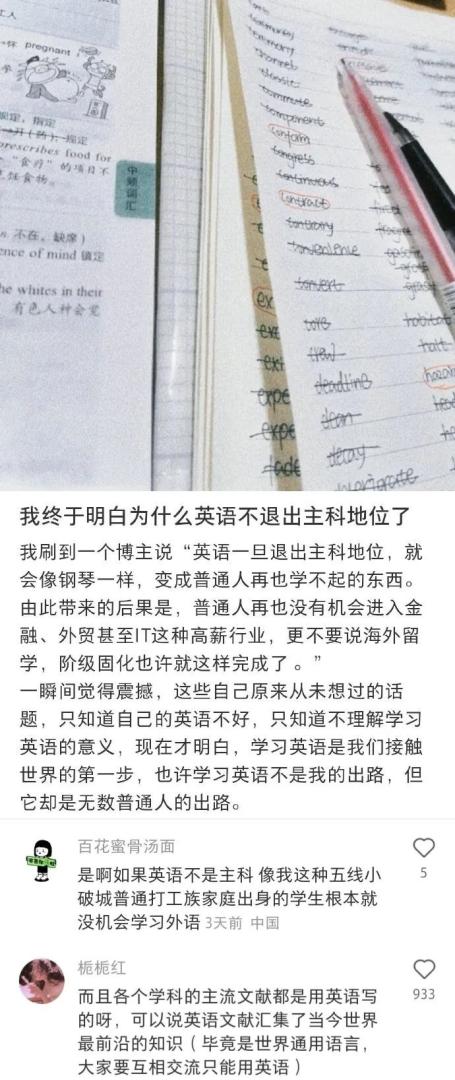 工人
pregnant !
规定，指定
prescribes food for
“食疗”的项目不
中频词汇
不在，缺席）
ence of mind 镇定
he whites in their
有色人种会觉
channel
classic
commute
component
conform
congress
continuous
contract
contrary
convenience
convert
core
crew
deadline
dean
decay
habitat
halt
我终于明白为什么英语不退出主科地位了
我刷到一个博主说“英语一旦退出主科地位，就
会像钢琴一样，变成普通人再也学不起的东西。
由此带来的后果是，普通人再也没有机会进入金
融、外贸甚至IT这种高薪行业，更不要说海外留
学，阶级固化也许就这样完成了 。”
一瞬间觉得震撼，这些自己原来从未想过的话
题，只知道自己的英语不好，只知道不理解学习
英语的意义，现在才明白，学习英语是我们接触
世界的第一步，也许学习英语不是我的出路，但
它却是无数普通人的出路。
百花蜜骨汤面
是啊如果英语不是主科 像我这种五线小
破城普通打工族家庭出身的学生根本就
没机会学习外语 3天前 中国
5
栀栀红
而且各个学科的主流文献都是用英语写
的呀，可以说英语文献汇集了当今世界
最前沿的知识（毕竟是世界通用语言，
大家要互相交流只能用英语）
933